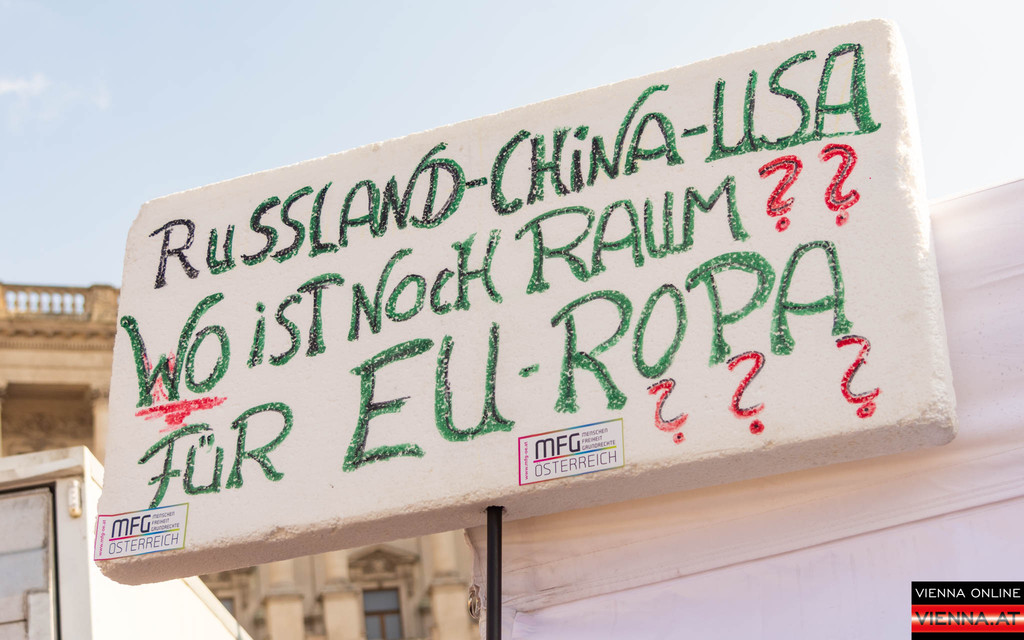 RUSSLAND-CHINA-USA
WO iST NOCH RAUM ??
FÜR EU-ROPA ???
MFG MENSCHEN FREIHEIT GRUNDRECHTE
ÖSTERREICH
MFG MENSCHEN FREIHEIT GRUNDRECHTE
ÖSTERREICH
VIENNA ONLINE
VIENNA.AT